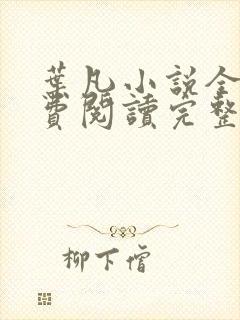 葉凡小說全
費閱讀完整
柳下僧